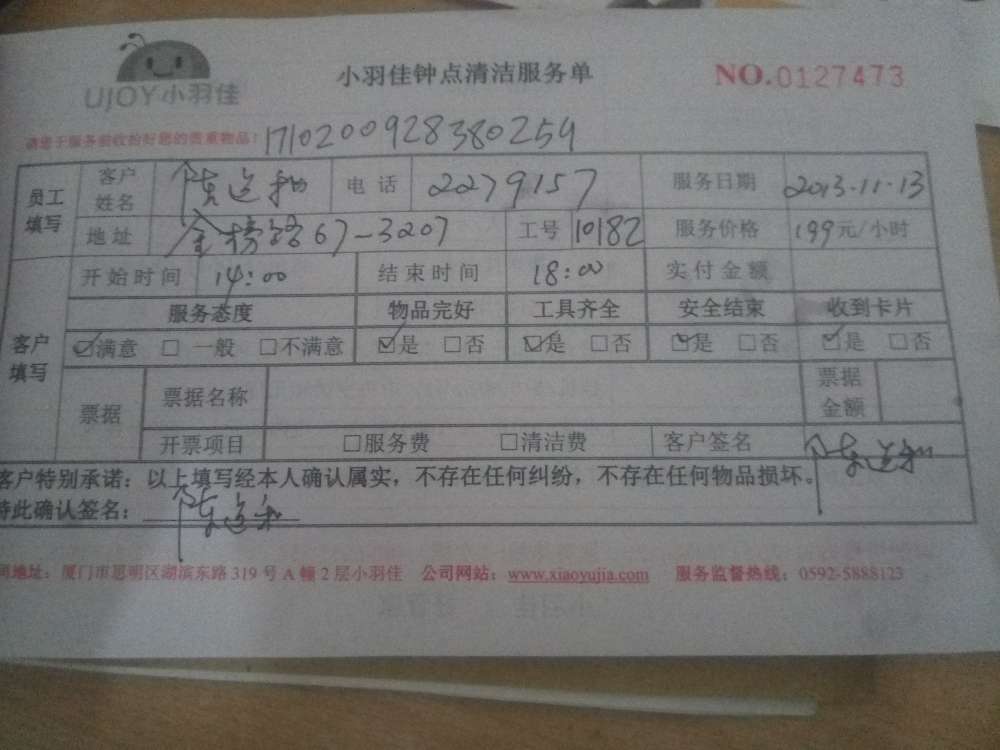 UJOY小羽佳
小羽佳钟点清洁服务单 NO.0127473
请您于服务前收拾好您的贵重物品! 171020092838025​9
员工填写 客户姓名 陈 电话 2279157 服务日期 2013.11.13
地址 金榜路67-3207 工号 10182 服务价格 199元/小时
客户填写 开始时间 14:00 结束时间 18:00 实付金额
服务态度 物品完好 工具齐全 安全结束 收到卡片
☑满意 □一般 □不满意 ☑是 □否 ☑是 □否 ☑是 □否 ☑是 □否
票据 票据名称 票据金额
开票项目 □服务费 □清洁费 客户签名 陈
客户特别承诺：以上填写经本人确认属实，不存在任何纠纷，不存在任何物品损坏。
特此确认签名： 陈
司地址：厦门市思明区湖滨东路 319 号 A 幢 2 层小羽佳 公司网站：www.xiaoyujia.com 服务监督热线：0592-5888123